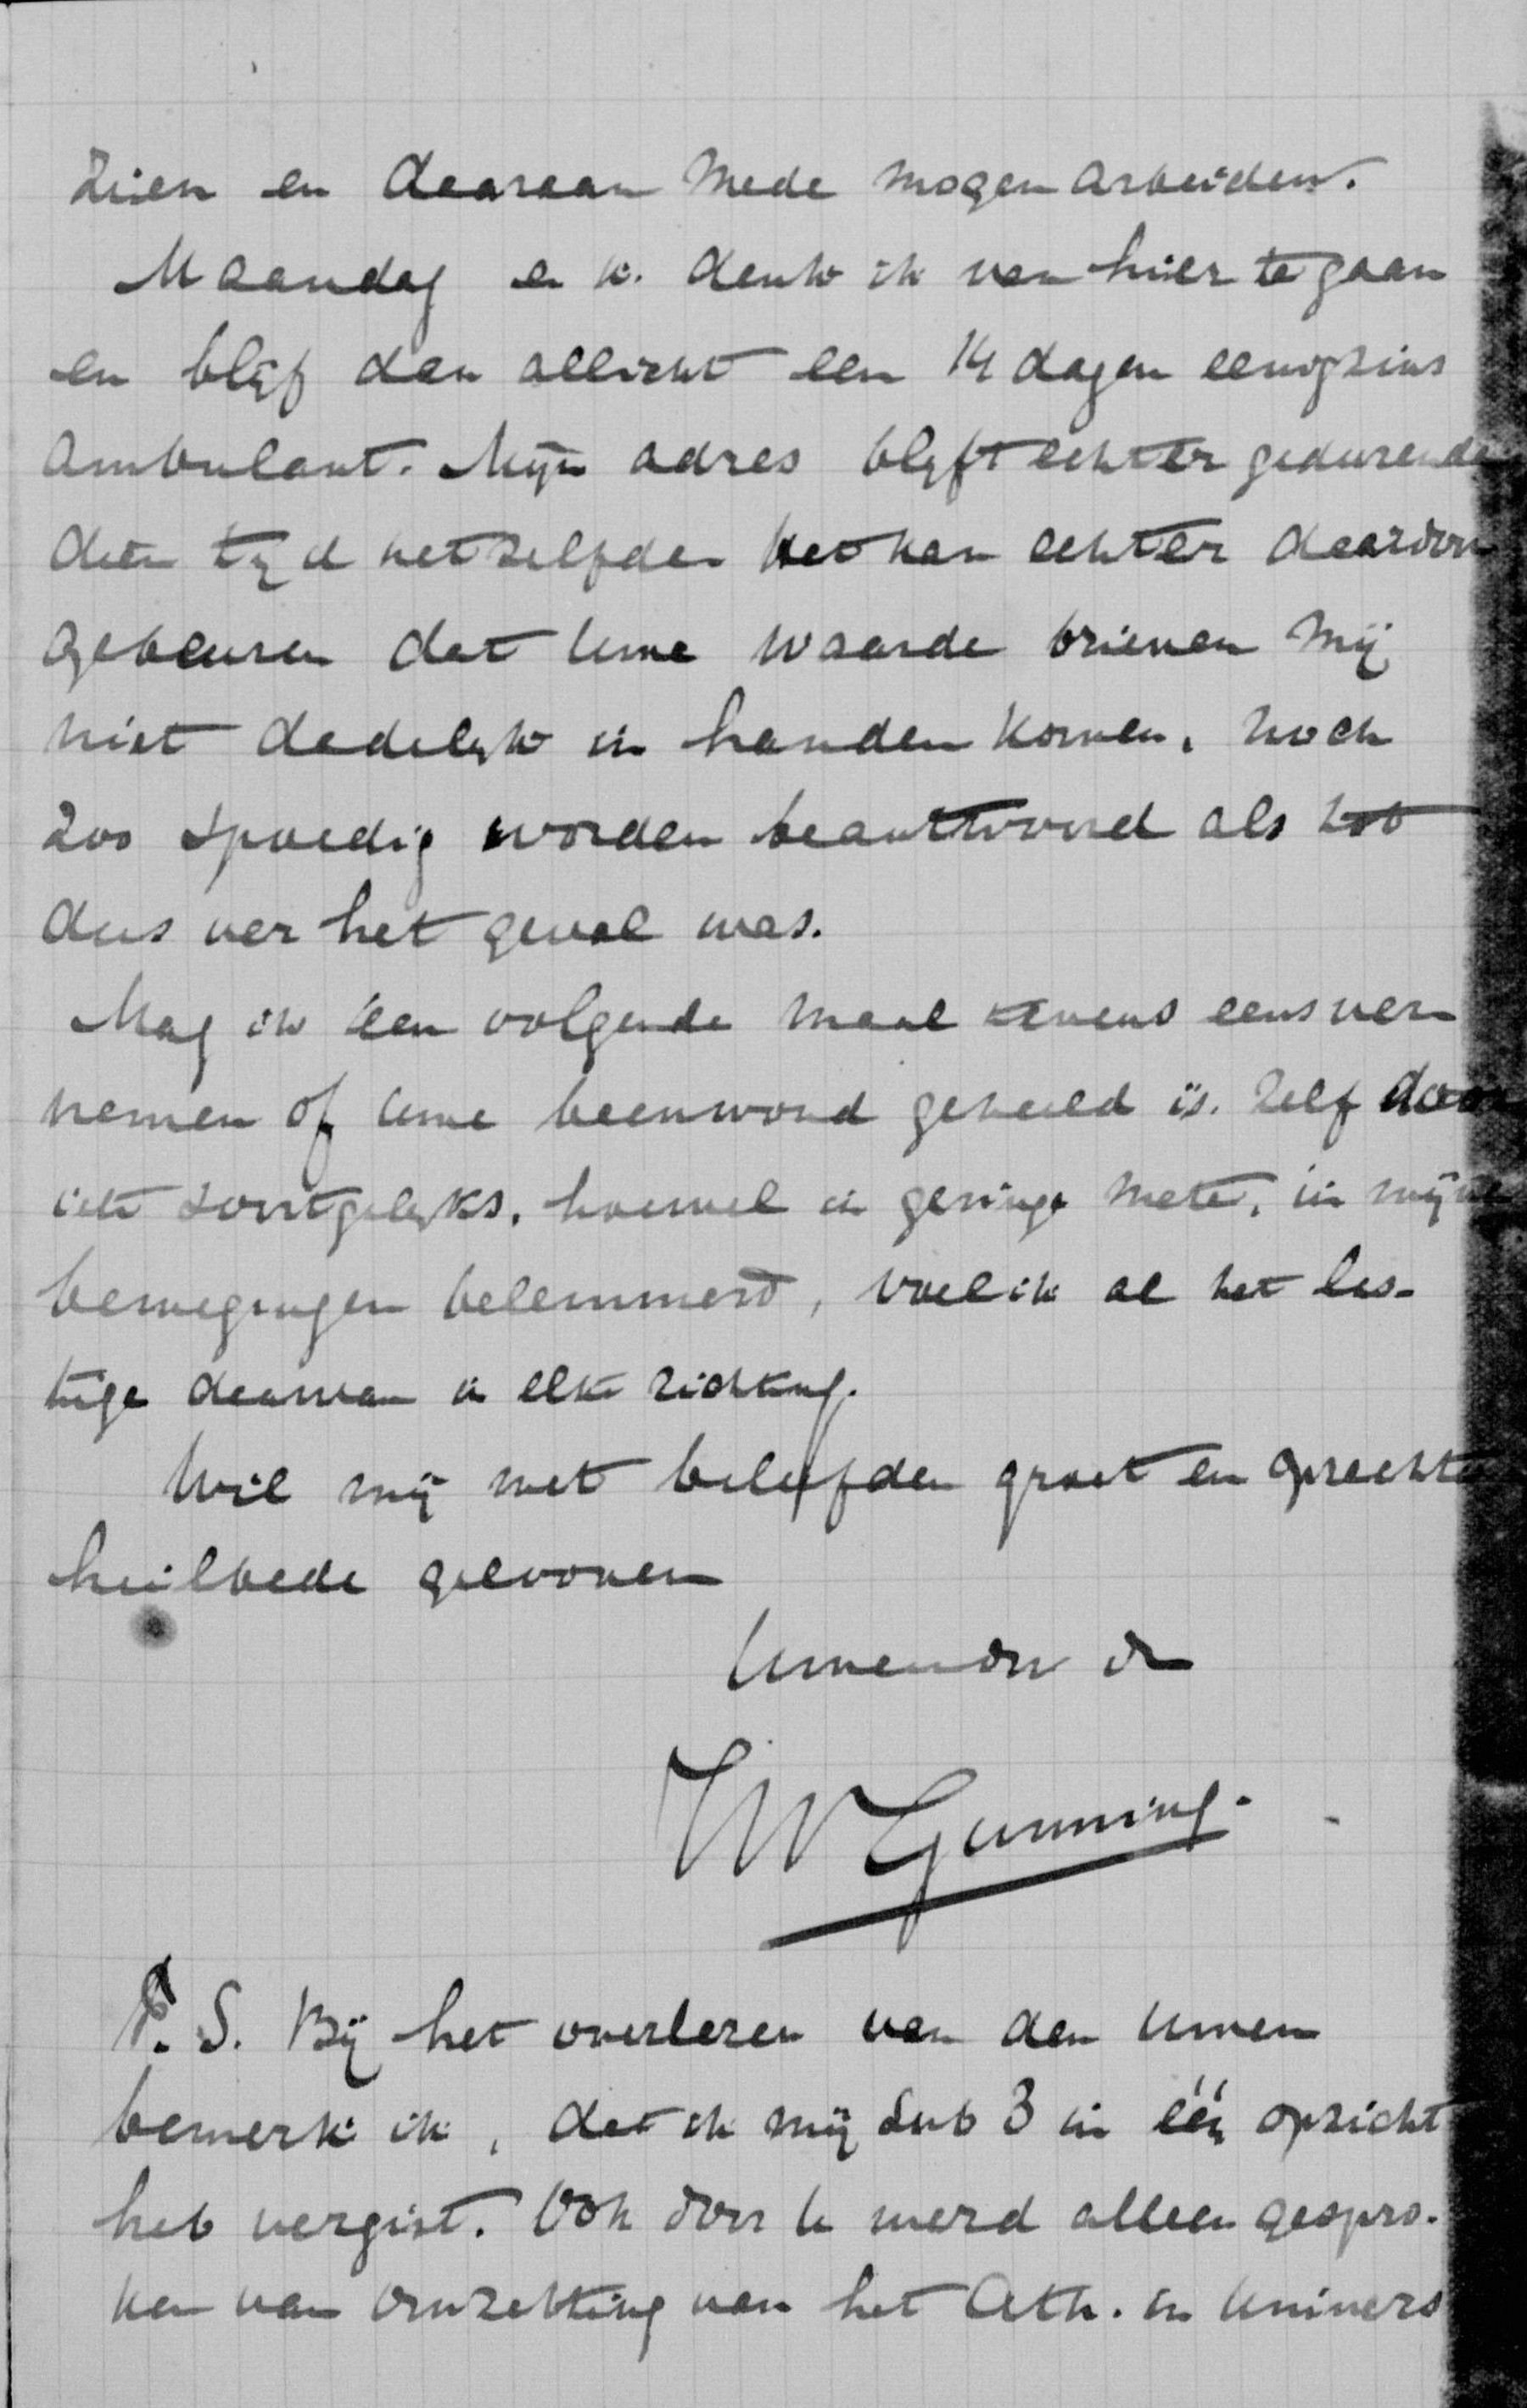 zien en daaraan mede mogen arbeiden.
Maandag e k. denk ik van hier te gaan
en blijf dan allicht een 14 dagen eenigzins
ambulant. Mijn adres blijft echter gedurende
dien tijd hetzelfde. Het kan echter daardoor
gebeuren dat Uwe waarde brieven mij
niet dadelijk in handen komen, noch
zoo spoedig worden beantwoord als tot
dus ver het geval was.
Mag ik een volgende maal tevens eens ver-
nemen of Uwe beenwond geheeld is. Zelf door
iets soortgelijks, hoewel in geringe mate, in mijne
bewegingen belemmerd, voel ik al het las-
tige daarvan in elke richting.
Wil mij met beleefden groet en oprechte
heilbede gelooven
Uwen dw dr
JW Gunning.
P. S. Bij het overlezen van den Uwen
bemerk ik, dat ik mij sub 3 in één opzicht
heb vergist. Ook door U werd alleen gespro-
ken van omzetting van het Ath. in Univers